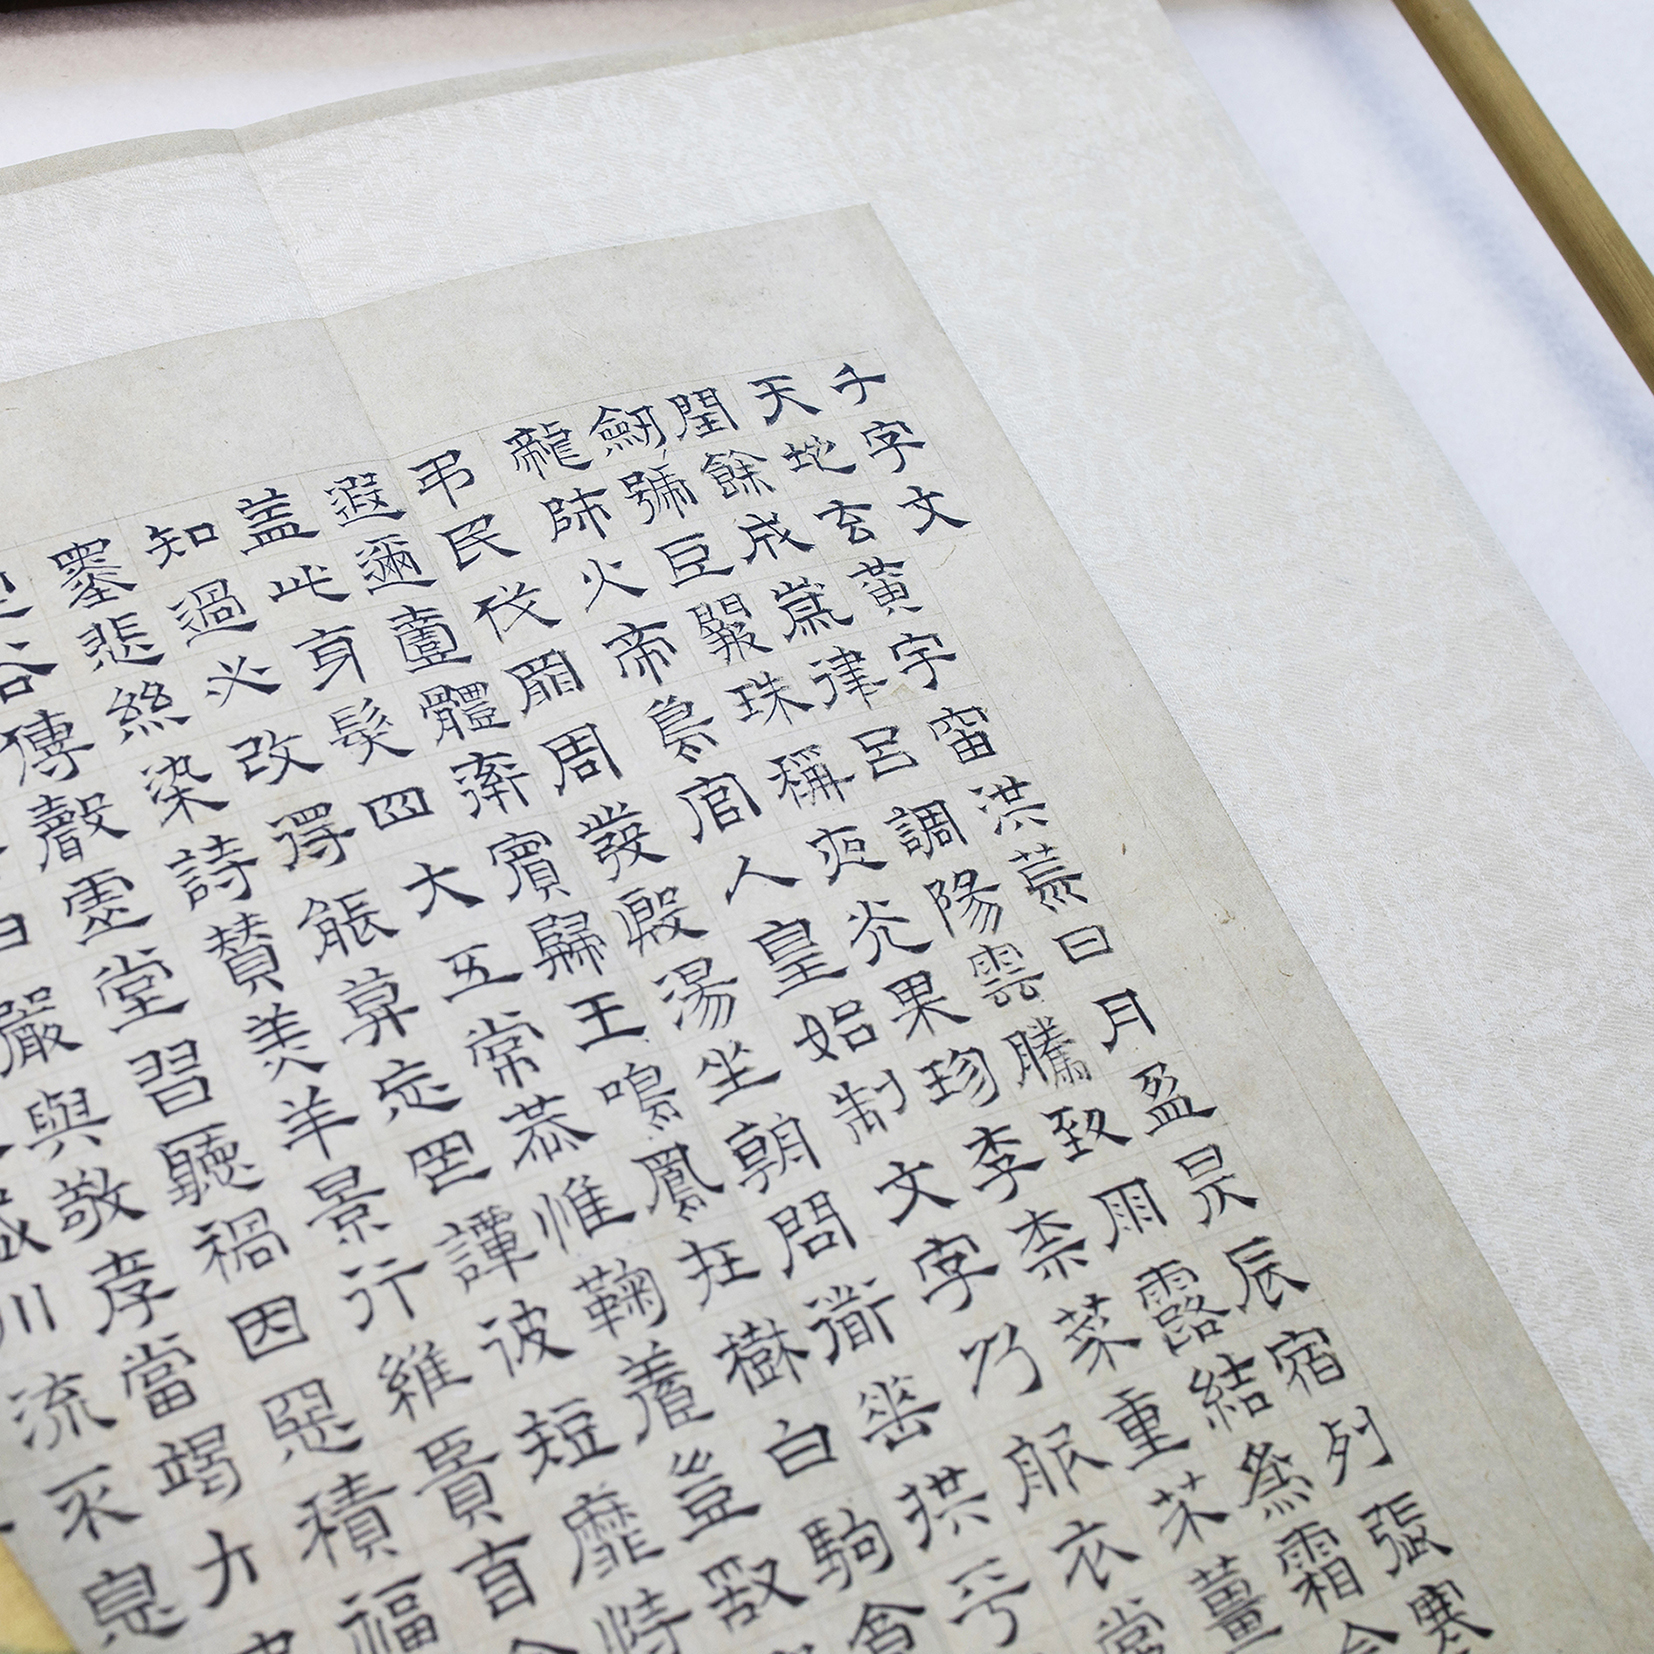 千字文
天地玄黄宇宙洪荒日月盈昃辰宿列張寒
閏餘成歲律呂調陽雲騰致雨露結為霜金
劒號巨闕珠稱夜光果珍李柰菜重芥薑
龍師火帝鳥官人皇始制文字乃服衣裳
弔民伐罪周發殷湯坐朝問道垂拱平
遐邇壹體率賓歸王鳴鳳在樹白駒食
蓋此身髮四大五常恭惟鞠養豈敢
知過必改得能莫忘罔譚彼短靡恃
墨悲絲染詩賛羔羊景行維賢克念
空谷傳聲虛堂習聽禍因惡積福
曰嚴與敬孝當竭力忠
盛川流不息